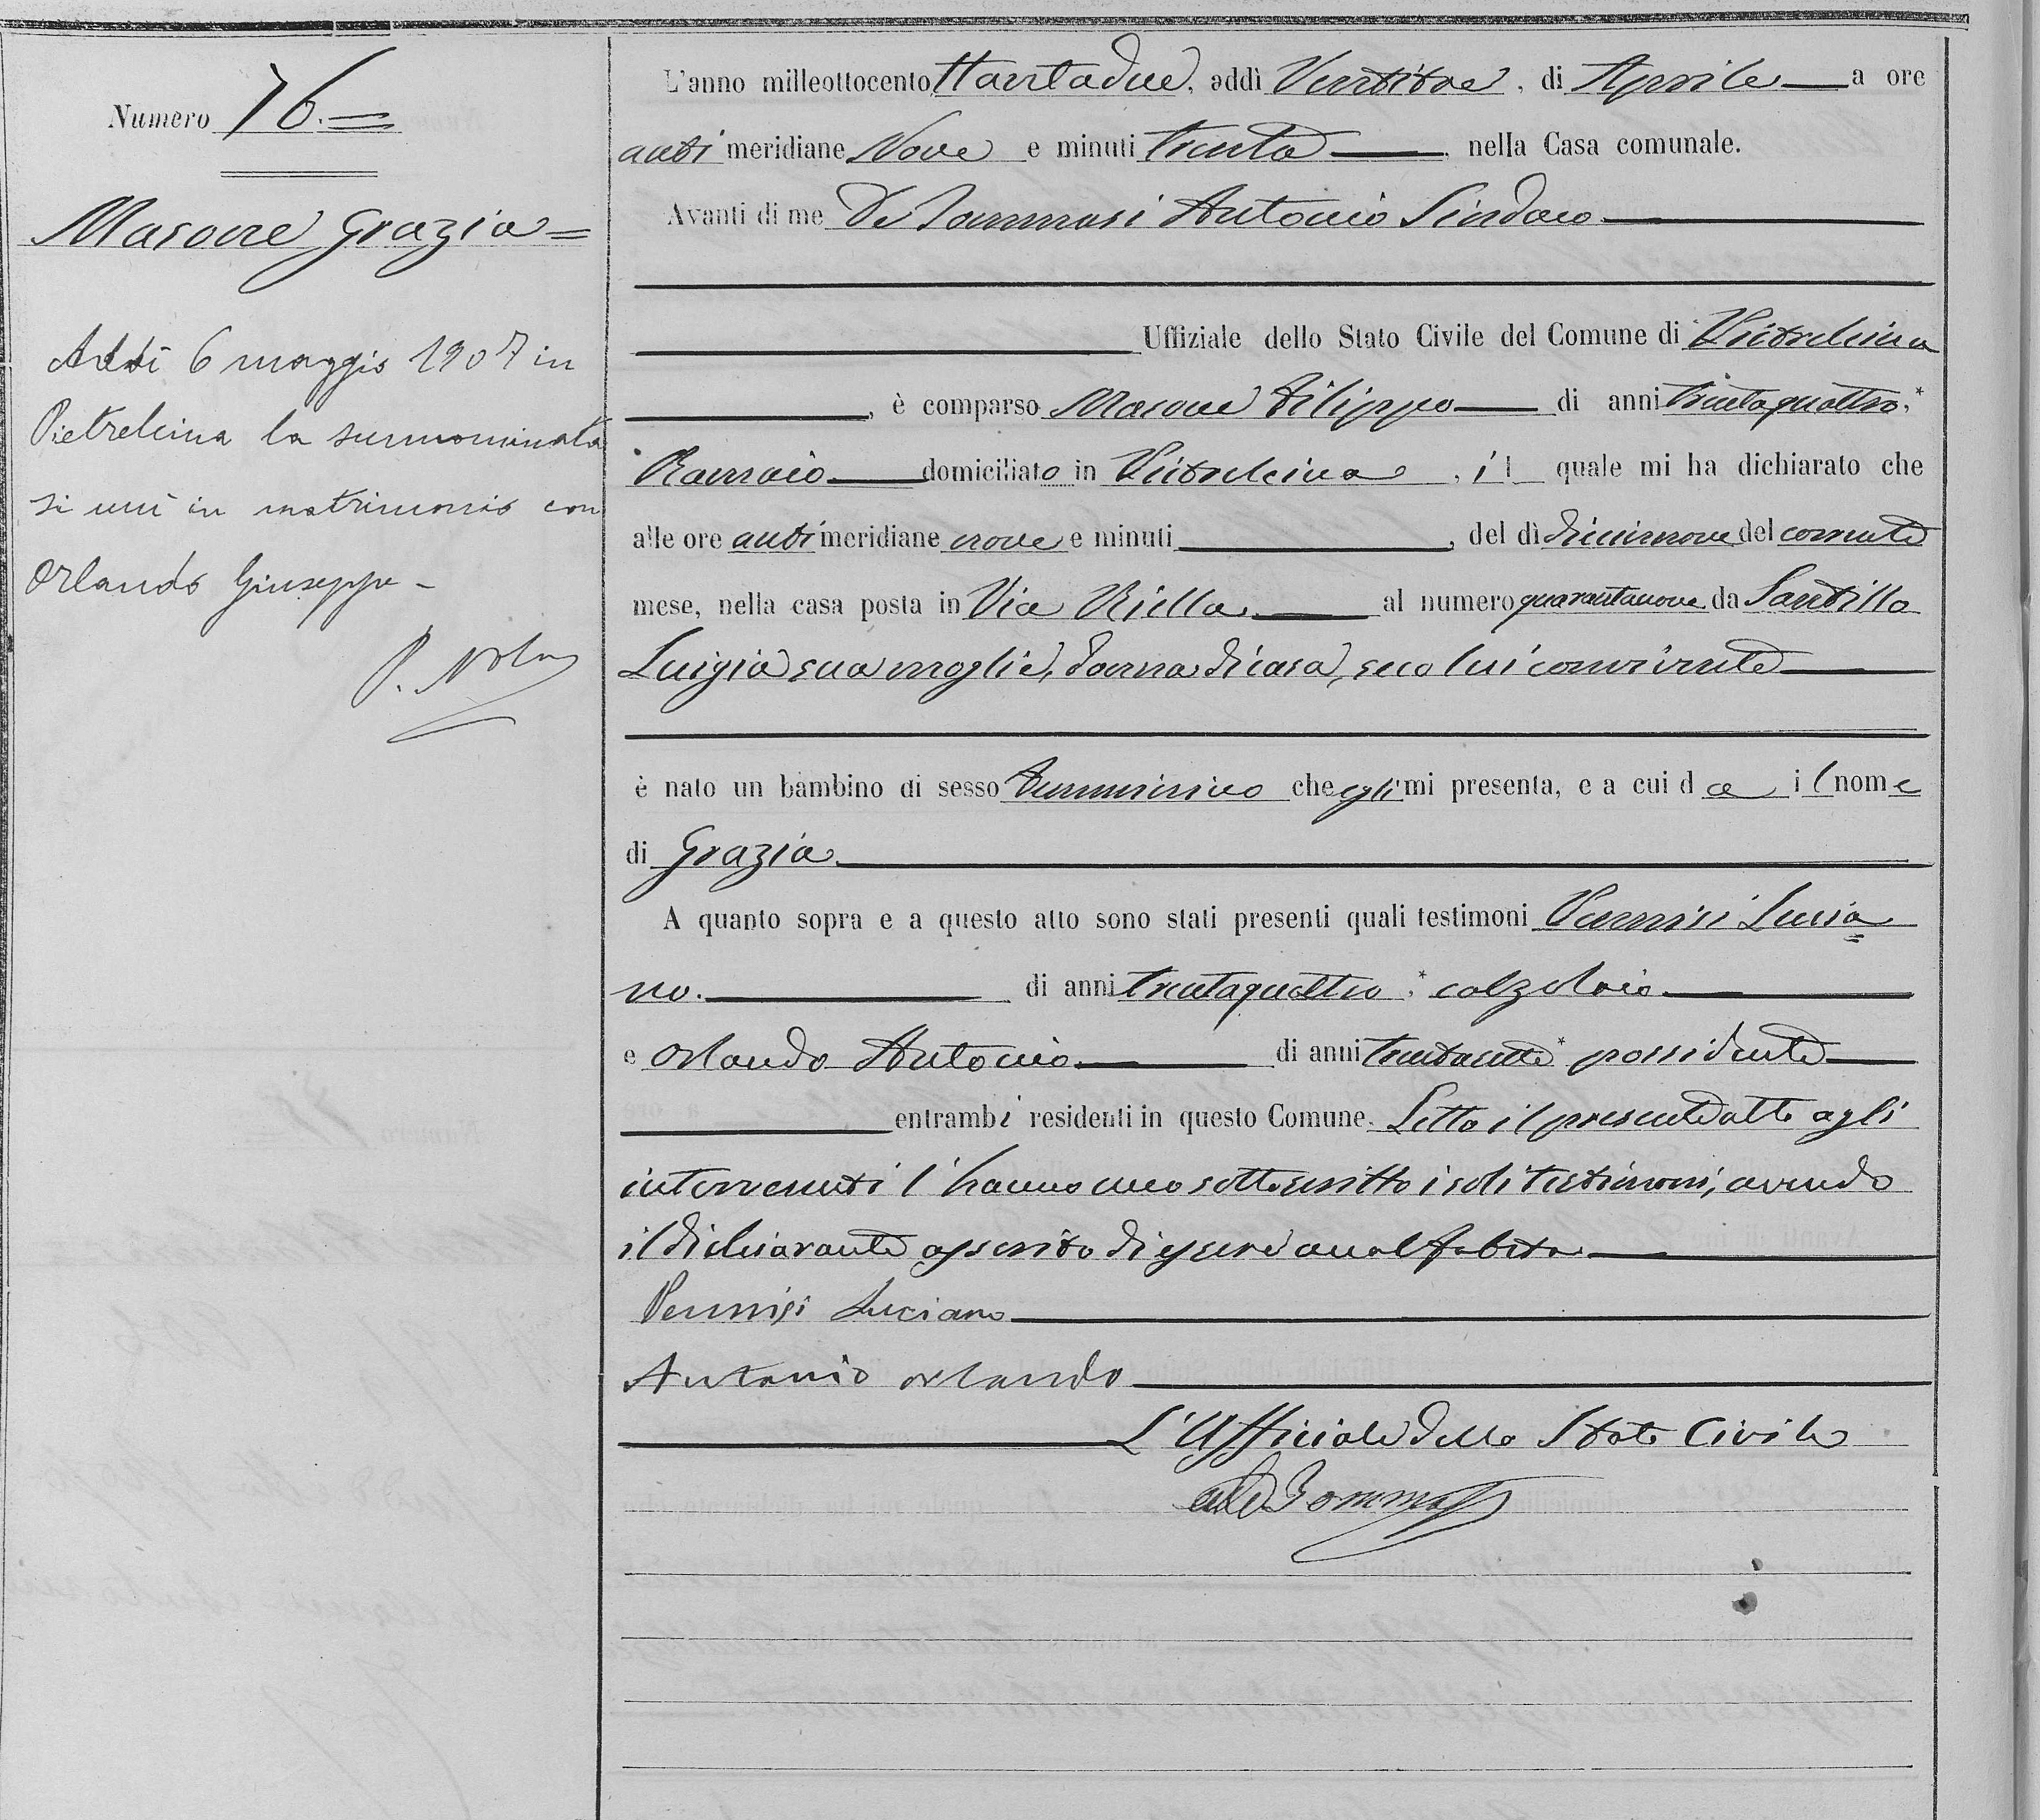 Numero 76.=
Masone Grazia=
Addì 6 maggio 1907 in
Pietrelcina la surnominata
si unì in matrimonio con
Orlando Giuseppe -
P.
L'anno milleottocentottantadue, addì Ventitre, di Aprile a ore
anti meridiane Nove e minuti trenta, nella Casa comunale.
Avanti di me De Tommasi Antonio Sindaco
Uffiziale dello Stato Civile del Comune di Pietrelcina
, è comparso Masone Filippo di anni trentaquattro,*
Ramaio domiciliato in Pietrelcina, il quale mi ha dichiarato che
alle ore anti meridiane nove e minuti, del dì diciannove del corrente
mese, nella casa posta in Via Riella al numero quarantanove da Santillo
Luigia sua moglie, donna di casa, seco lui convivente
è nato un bambino di sesso femminino che egli mi presenta, e a cui da il nome
di Grazia.
A quanto sopra e a questo atto sono stati presenti quali testimoni Pennisi Lucia=
no. di anni trentaquattro,* calzolaio
e Orlando Antonio di anni trentasette* possidente
entrambi residenti in questo Comune. Letto il presente atto agli
intervenuti l'hanno meco sottoscritto i soli testimoni, avendo
il dichiarante asserito di essere analfabeta.
Pennisi Luciano
Antonio Orlando
L'Ufficiale dello Stato Civile
A De Tommasi